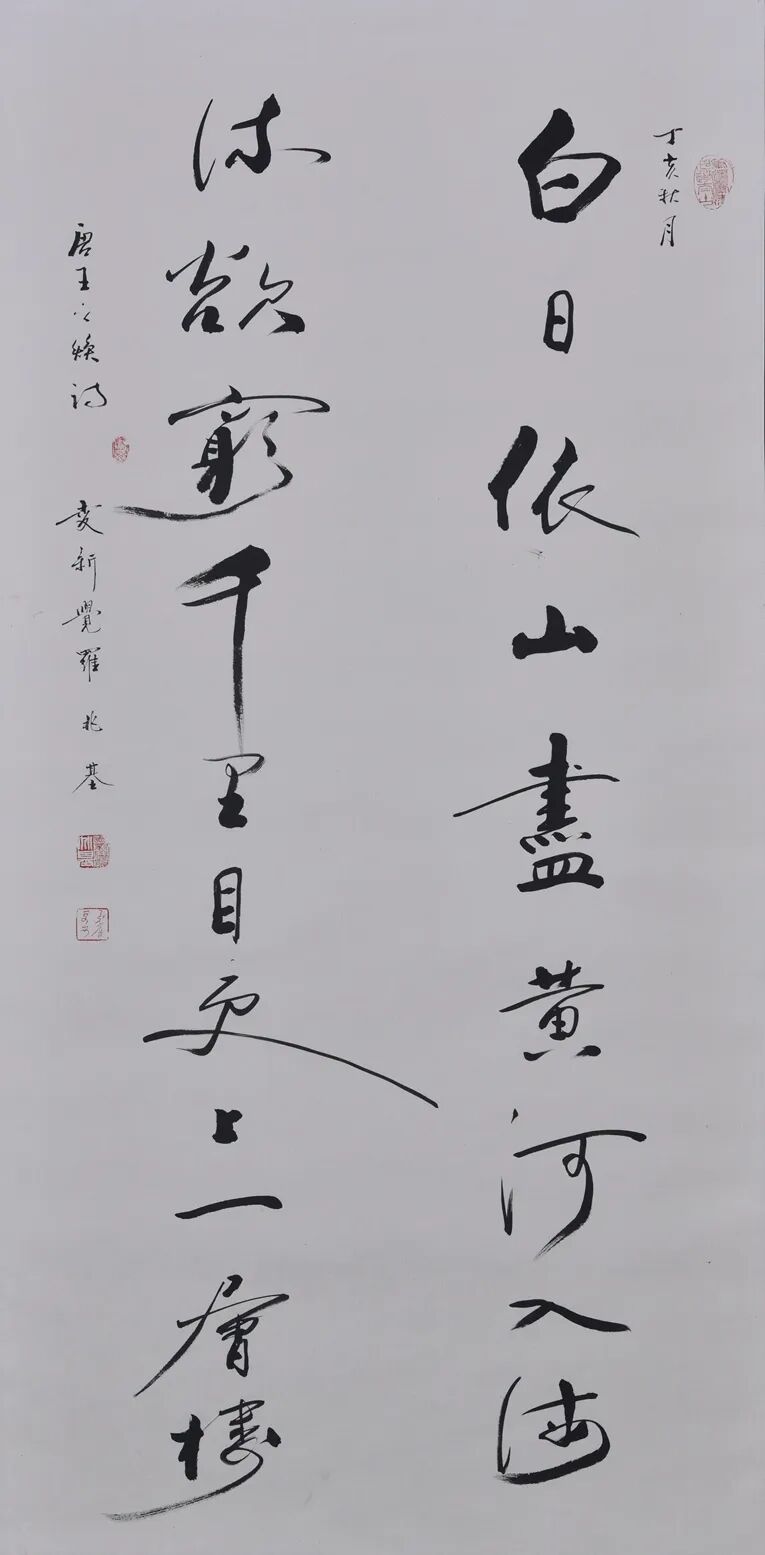 丁亥秋月
白日依山盡黄河入海
流欲窮千里目更上一層樓
唐王之焕诗
爱新覺羅兆基